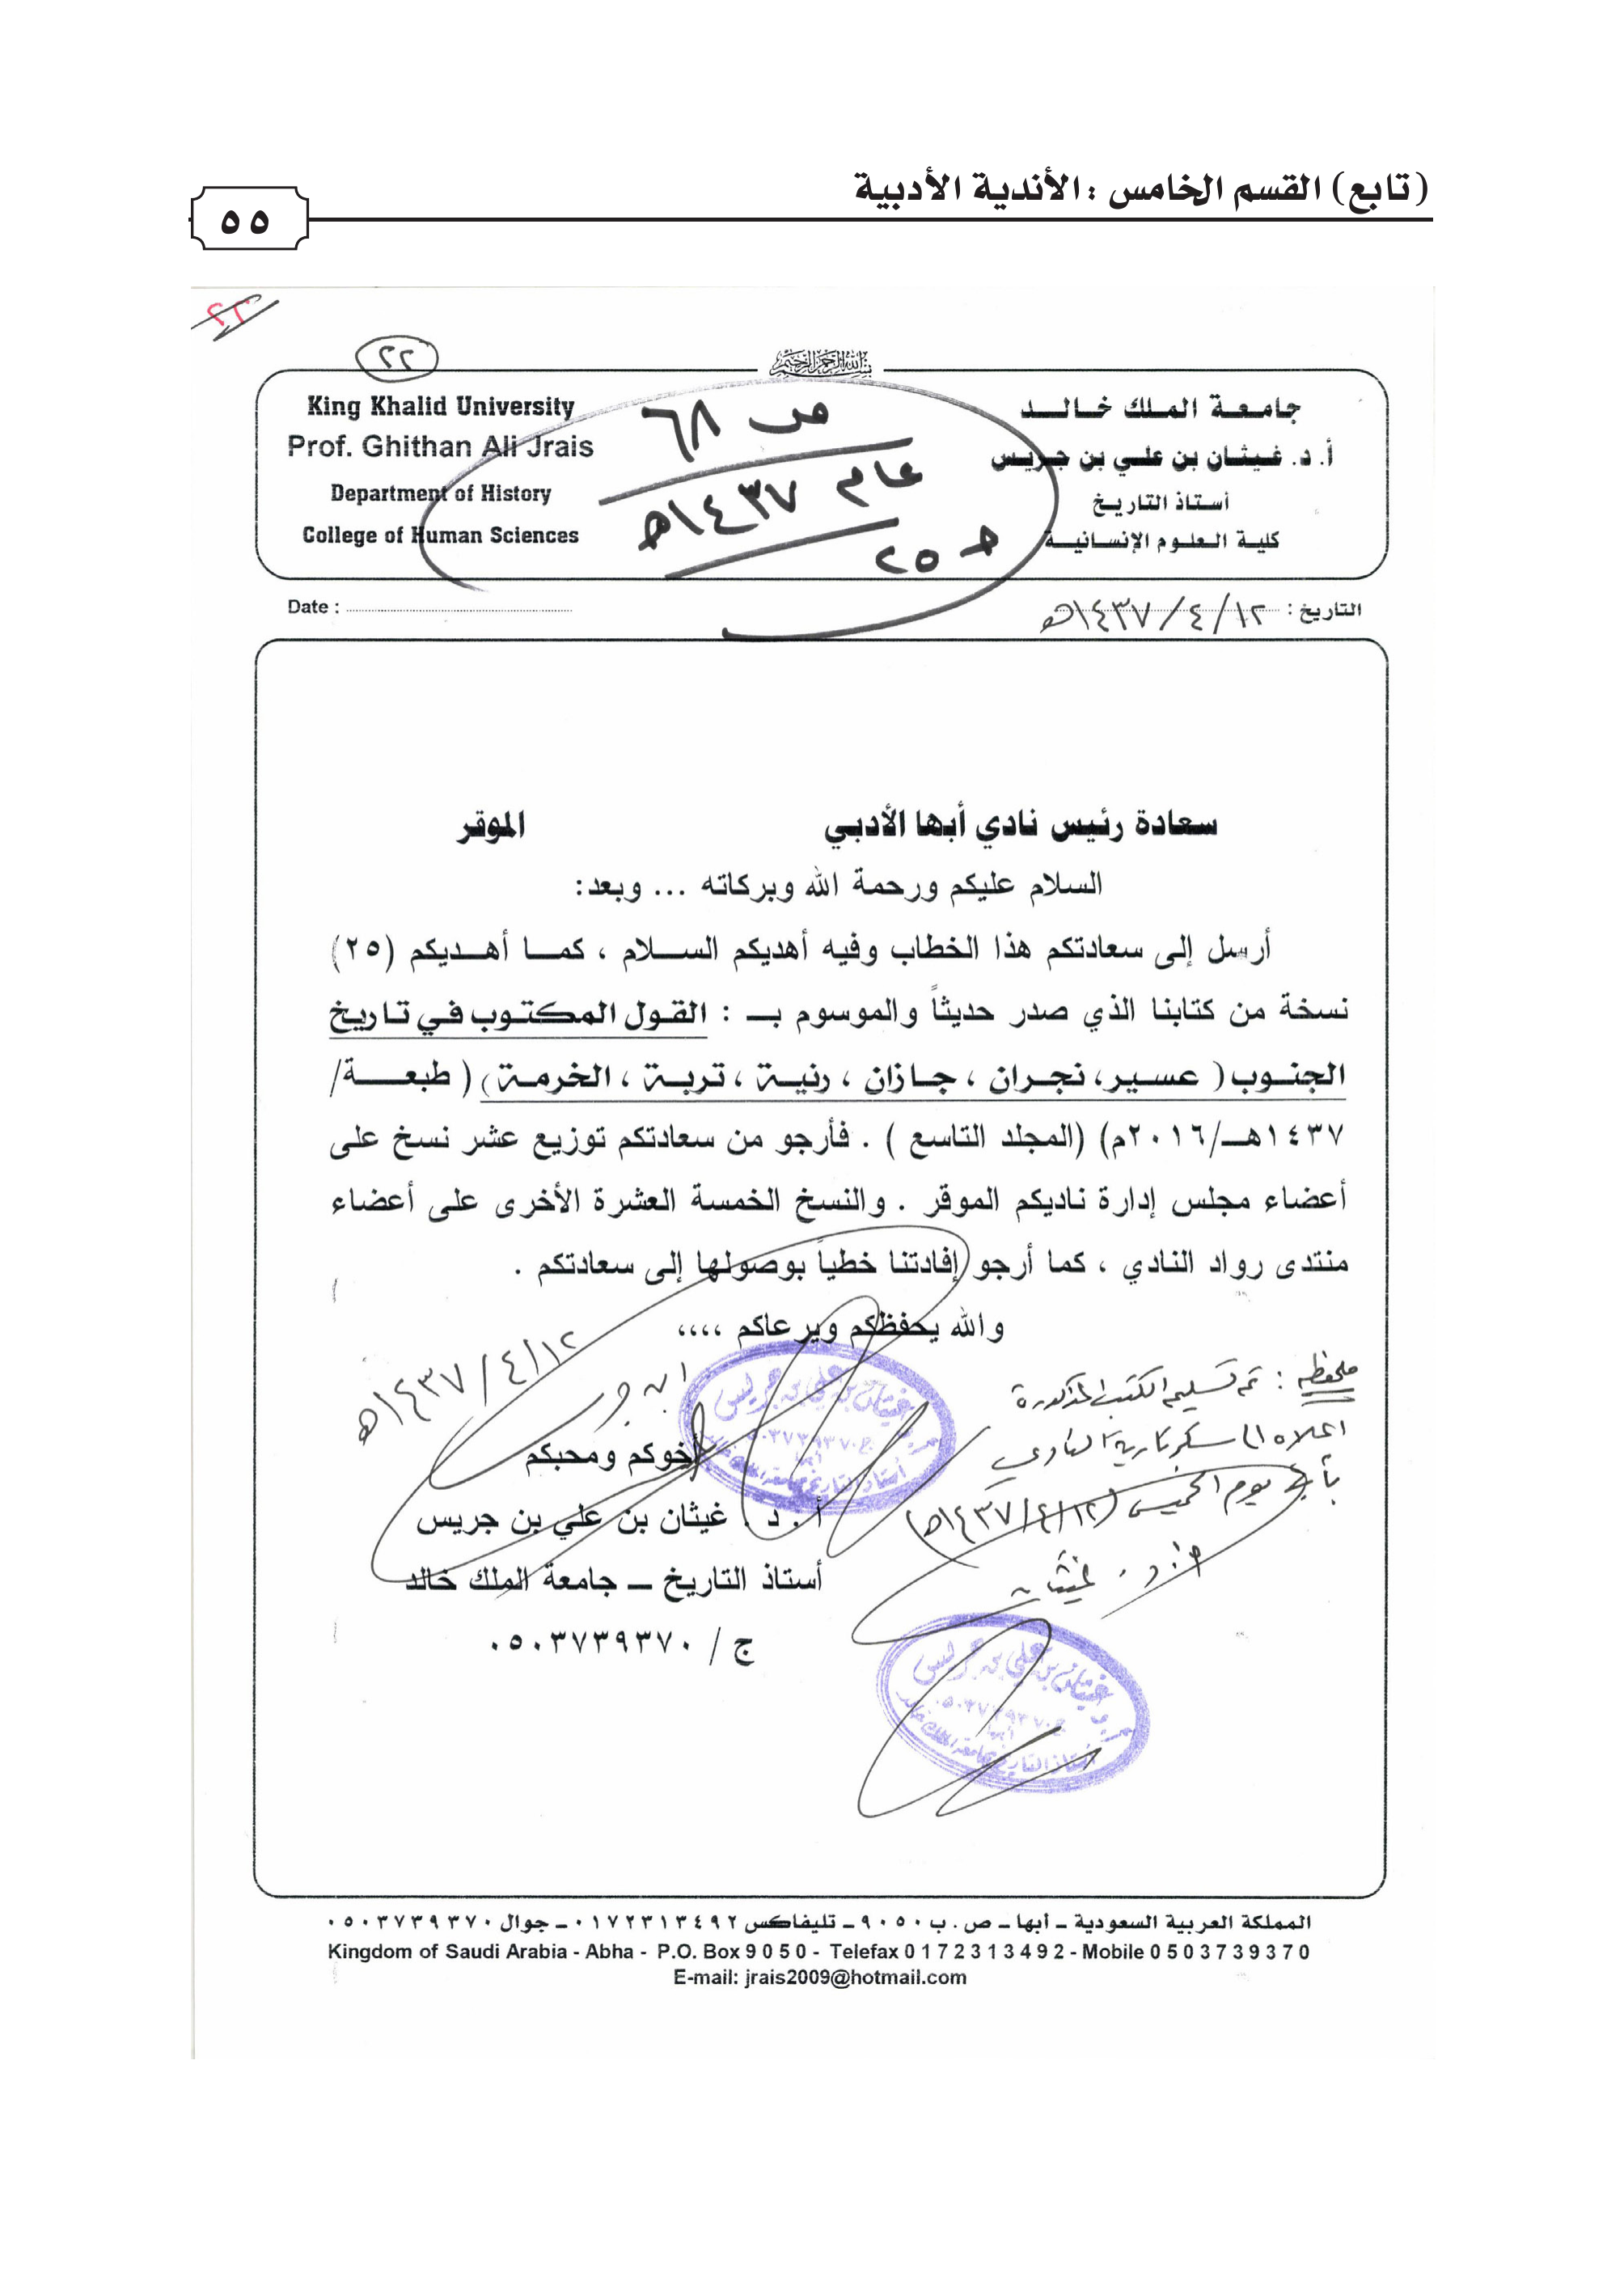 (تابع) القسم الخامس : الأندية الأدبية
٥٥
٢٢
بسم الله الرحمن الرحيم
King Khalid University
Prof. Ghithan Ali Jrais
Department of History
College of Human Sciences
جامعة الملك خالد
أ. د. غيثان بن علي بن جريس
أستاذ التاريخ
كلية العلوم الإنسانية
ص ٦٨
عام ١٤٣٧هـ
٢٥
Date :
التاريخ : ١٢/٤/١٤٣٧هـ
سعادة رئيس نادي أبها الأدبي الموقر
السلام عليكم ورحمة الله وبركاته ... وبعد:
أرسل إلى سعادتكم هذا الخطاب وفيه أهديكم السلام ، كما أهديكم (٢٥)
نسخة من كتابنا الذي صدر حديثاً والموسوم بـ : القول المكتوب في تاريخ
الجنوب( عسير، نجران ، جازان ، رنية ، تربة ، الخرمة) ( طبعة/
١٤٣٧هـ/٢٠١٦م) (المجلد التاسع ) . فأرجو من سعادتكم توزيع عشر نسخ على
أعضاء مجلس إدارة ناديكم الموقر . والنسخ الخمسة العشرة الأخرى على أعضاء
منتدى رواد النادي ، كما أرجو إفادتنا خطياً بوصولها إلى سعادتكم .
والله يحفظكم ويرعاكم ،،،،
١٢/٤/١٤٣٧هـ
أخوكم ومحبكم
أ . د . غيثان بن علي بن جريس
أستاذ التاريخ – جامعة الملك خالد
ج / ٠٥٠٣٧٣٩٣٧٠
ملحظه : تم تسليم الكتب المذكورة
اعلاه الى سكرتارية النادي
يوم الخميس (١٢/٤/١٤٣٧هـ)
غيثان بن علي بن جريس
ج٠٥٠٣٧٣٩٣٧٠
أبها
أستاذ التاريخ بجامعة الملك خالد
غيثان بن علي بن جريس
ج٠٥٠٣٧٣٩٣٧٠
أبها
أستاذ التاريخ بجامعة الملك خالد
المملكة العربية السعودية – أبها – ص . ب ٩٠٥٠ – تليفاكس ٠١٧٢٣١٣٤٩٢ – جوال ٠٥٠٣٧٣٩٣٧٠
Kingdom of Saudi Arabia - Abha - P.O. Box 9 0 5 0 - Telefax 0 1 7 2 3 1 3 4 9 2 - Mobile 0 5 0 3 7 3 9 3 7 0
E-mail: jrais2009@hotmail.com